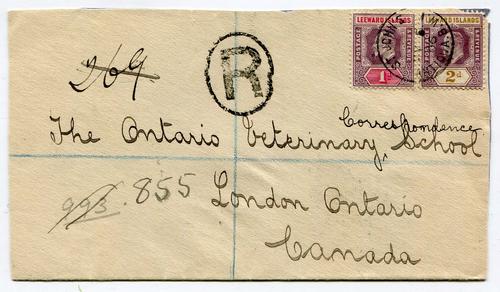 LEEWARD ISLANDS LEEWARD ISLANDS
POSTAGE REVENUE
1d 2d
ST JOHN'S
R
269
Correspondence
The Ontario Veterinary ^ School
993. 855
London Ontario
Canada